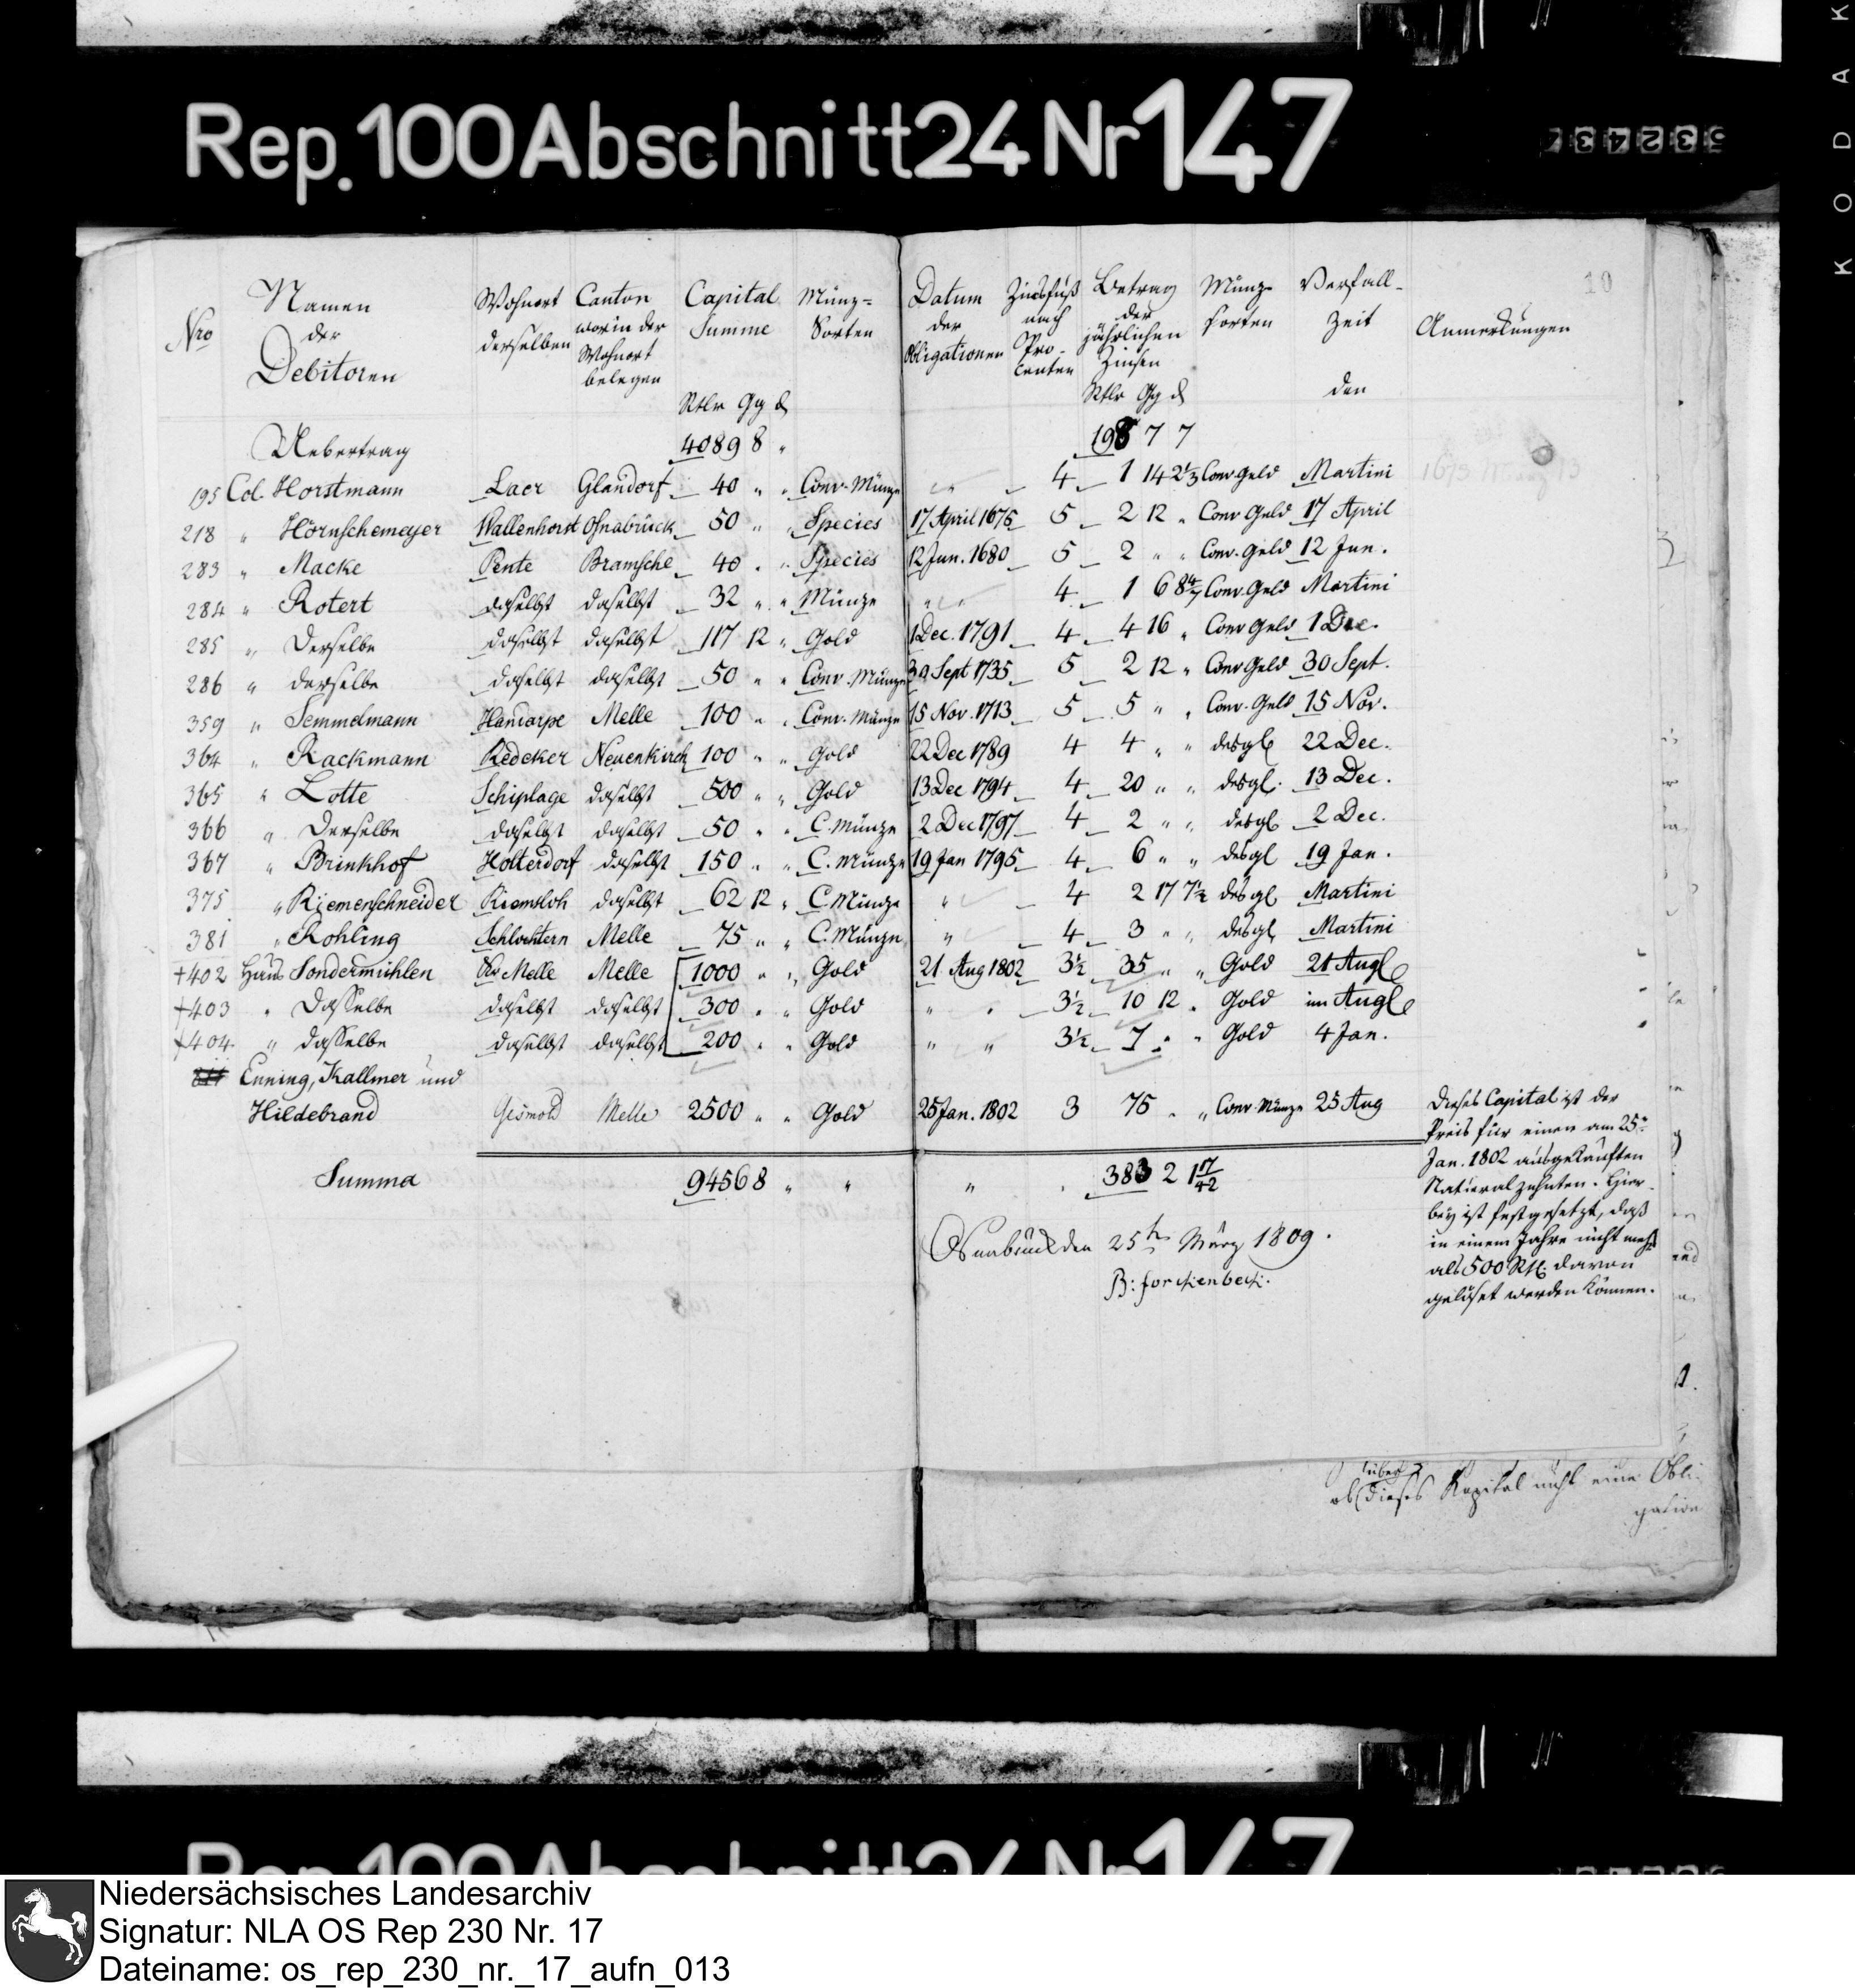 Rep. 100 Abschnitt 24 Nr 147
KODAK
10
Nro Namen der Debitoren Wohnort derselben Canton worin der Wohnort belegen Capital Summe Münz-Sorten Datum der Obligationen Zinsfuß nach Pro-Centen Betrag der jährlichen Zinsen Münz-sorten Verfall-Zeit Anmerkungen
Rtlr Gg ₰ Rtlr Gg ₰ den
Uebertrag 4089 8 „ 198 7 7
195 Col. Horstmann Laer Glandorf 40 „ „ Conv-Münze „ 4 1 14 2⅖ Conv Geld Martini
218 „ Hörnschemeyer Wallenhorst Osnabrück 50 „ „ Species 17 April 1675 5 2 12 „ Conv Geld 17 April
283 „ Macke Pente Bramsche 40 „ „ Species 12 Jun. 1680 5 2 „ „ Conv. Geld 12 Jun.
284 „ Rotert daselbst daselbst 32 „ „ Münze „ „ 4 1 6 8 4/7 Conv. Geld Martini
285 „ Derselbe daselbst daselbst 117 12 „ Gold 1 Dec. 1791 4 4 16 „ Conv Geld 1 Dec.
286 „ derselbe daselbst daselbst 50 „ „ Conv. Münze 30 Sept 1735 5 2 12 „ Conv Geld 30 Sept.
359 „ Semmelmann Handarpe Melle 100 „ „ Conv. Münze 15 Nov. 1713 5 5 „ „ Conv. Geld 15 Nov.
364 „ Rackmann Redeker Neuenkirch 100 „ „ Gold 22 Dec 1789 4 4 „ „ desgl 22 Dec.
365 „ Lotte Schiplage daselbst 500 „ „ Gold 13 Dec 1794 4 20 „ „ desgl. 13 Dec.
366 „ Derselbe daselbst daselbst 50 „ „ C. Münze 2 Dec 1797 4 2 „ „ desgl 2 Dec.
367 „ Brinkhof Holterdorf daselbst 150 „ „ C. Münze 19 Jan 1795 4 6 „ „ desgl 19 Jan.
375 „ Riemenschneider Riemsloh daselbst 62 12 „ C. Münze „ 4 2 17 7½ desgl Martini
381 „ Rohling Schlochtern Melle 75 „ „ C. Münze „ 4 3 „ „ desgl. Martini
+402 Haus Sondermühlen Melle Melle 1000 „ „ Gold 21 Aug 1802 3½ 35 „ „ Gold 21 Aug
+403 „ Dasselbe daselbst daselbst 300 „ „ Gold „ „ 3½ 10 12 „ Gold im Aug
+404. „ dasselbe daselbst daselbst 200 „ „ Gold „ „ 3½ 7 „ „ Gold 4 Jan.
Enning, Kallmer und
Hildebrand Gesmold Melle 2500 „ „ Gold 25 Jan. 1802 3 75 „ „ Conv. Münze 25 Aug
Dieses Capital ist der
Preis für einen am 25n
Jan. 1802 ausgekauften
Natural zehnten. Hier-
bey ist festgesetzt, daß
in einem Jahre nicht mehr
als 500 Rtl. davon
gelöset werden können.
Summa 9456 8 „ „ „ 383 2 1 17/42
Osnabrück den 25ten März 1809.
B: forckenbeck.
über
ob dieses Kapital nicht eine Obli-
gation
Niedersächsisches Landesarchiv
Signatur: NLA OS Rep 230 Nr. 17
Dateiname: os_rep_230_nr._17_aufn_013